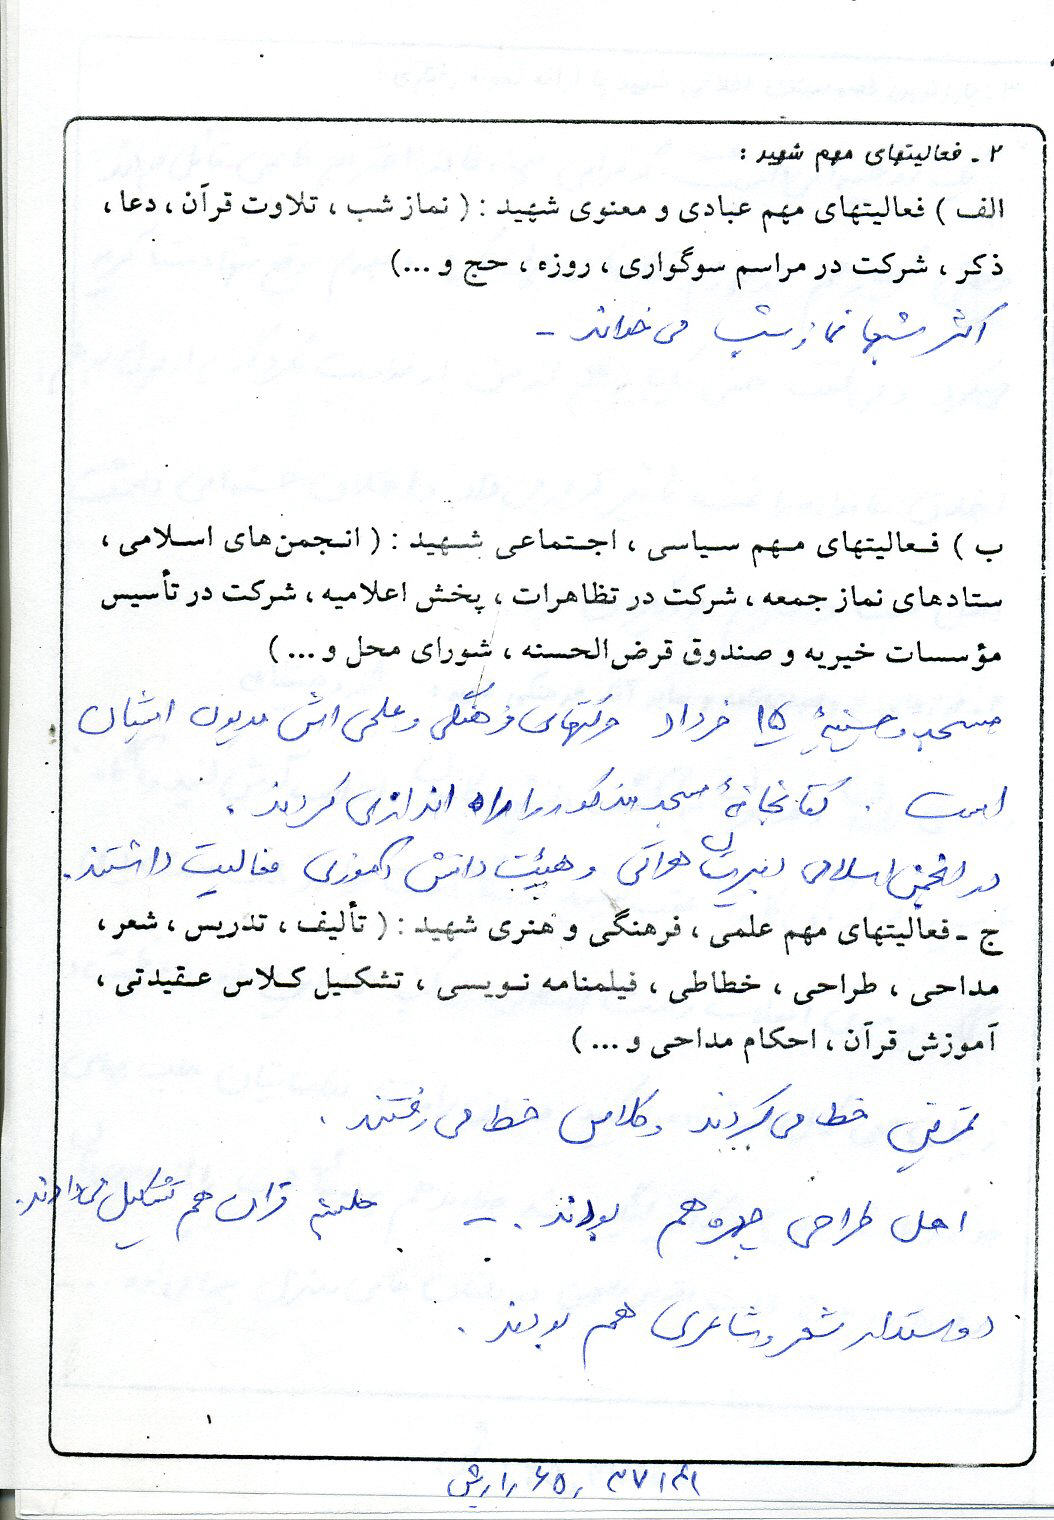 ۲ ـ فعالیتهای مهم شهید :
الف ) فعالیتهای مهم عبادی و معنوی شهید : ( نماز شب ، تلاوت قرآن ، دعا ،
ذکر ، شرکت در مراسم سوگواری ، روزه ، حج و ...)
اکثر شبها نماز شب می خواند –
ب ) فعالیتهای مهم سیاسی ، اجتماعی شهید : ( انجمن‌های اسلامی ،
ستادهای نماز جمعه ، شرکت در تظاهرات ، پخش اعلامیه ، شرکت در تأسیس
مؤسسات خیریه و صندوق قرض‌الحسنه ، شورای محل و ... )
مسجد و حسینیهٔ ۱۵ خرداد حرکتهای فرهنگی و علمی اش مدیون ایشان
است . کتابخانهٔ مسجد مذکور را راه اندازی کردند .
در انجمن اسلامی دبیرستان هراتی و هیئت دانش آموزی فعالیت داشتند.
ج ـ فعالیتهای مهم علمی ، فرهنگی و هنری شهید : ( تألیف ، تدریس ، شعر ،
مداحی ، طراحی ، خطاطی ، فیلمنامه نویسی ، تشکیل کلاس عقیدتی ،
آموزش قرآن ، احکام مداحی و ... )
تمرین خط می کردند و کلاس خط می رفتند .
اهل طراحی چهره هم بودند . – جلسه قرآن هم تشکیل می دادند.
دوستدار شعر و شاعری هم بودند .
۱